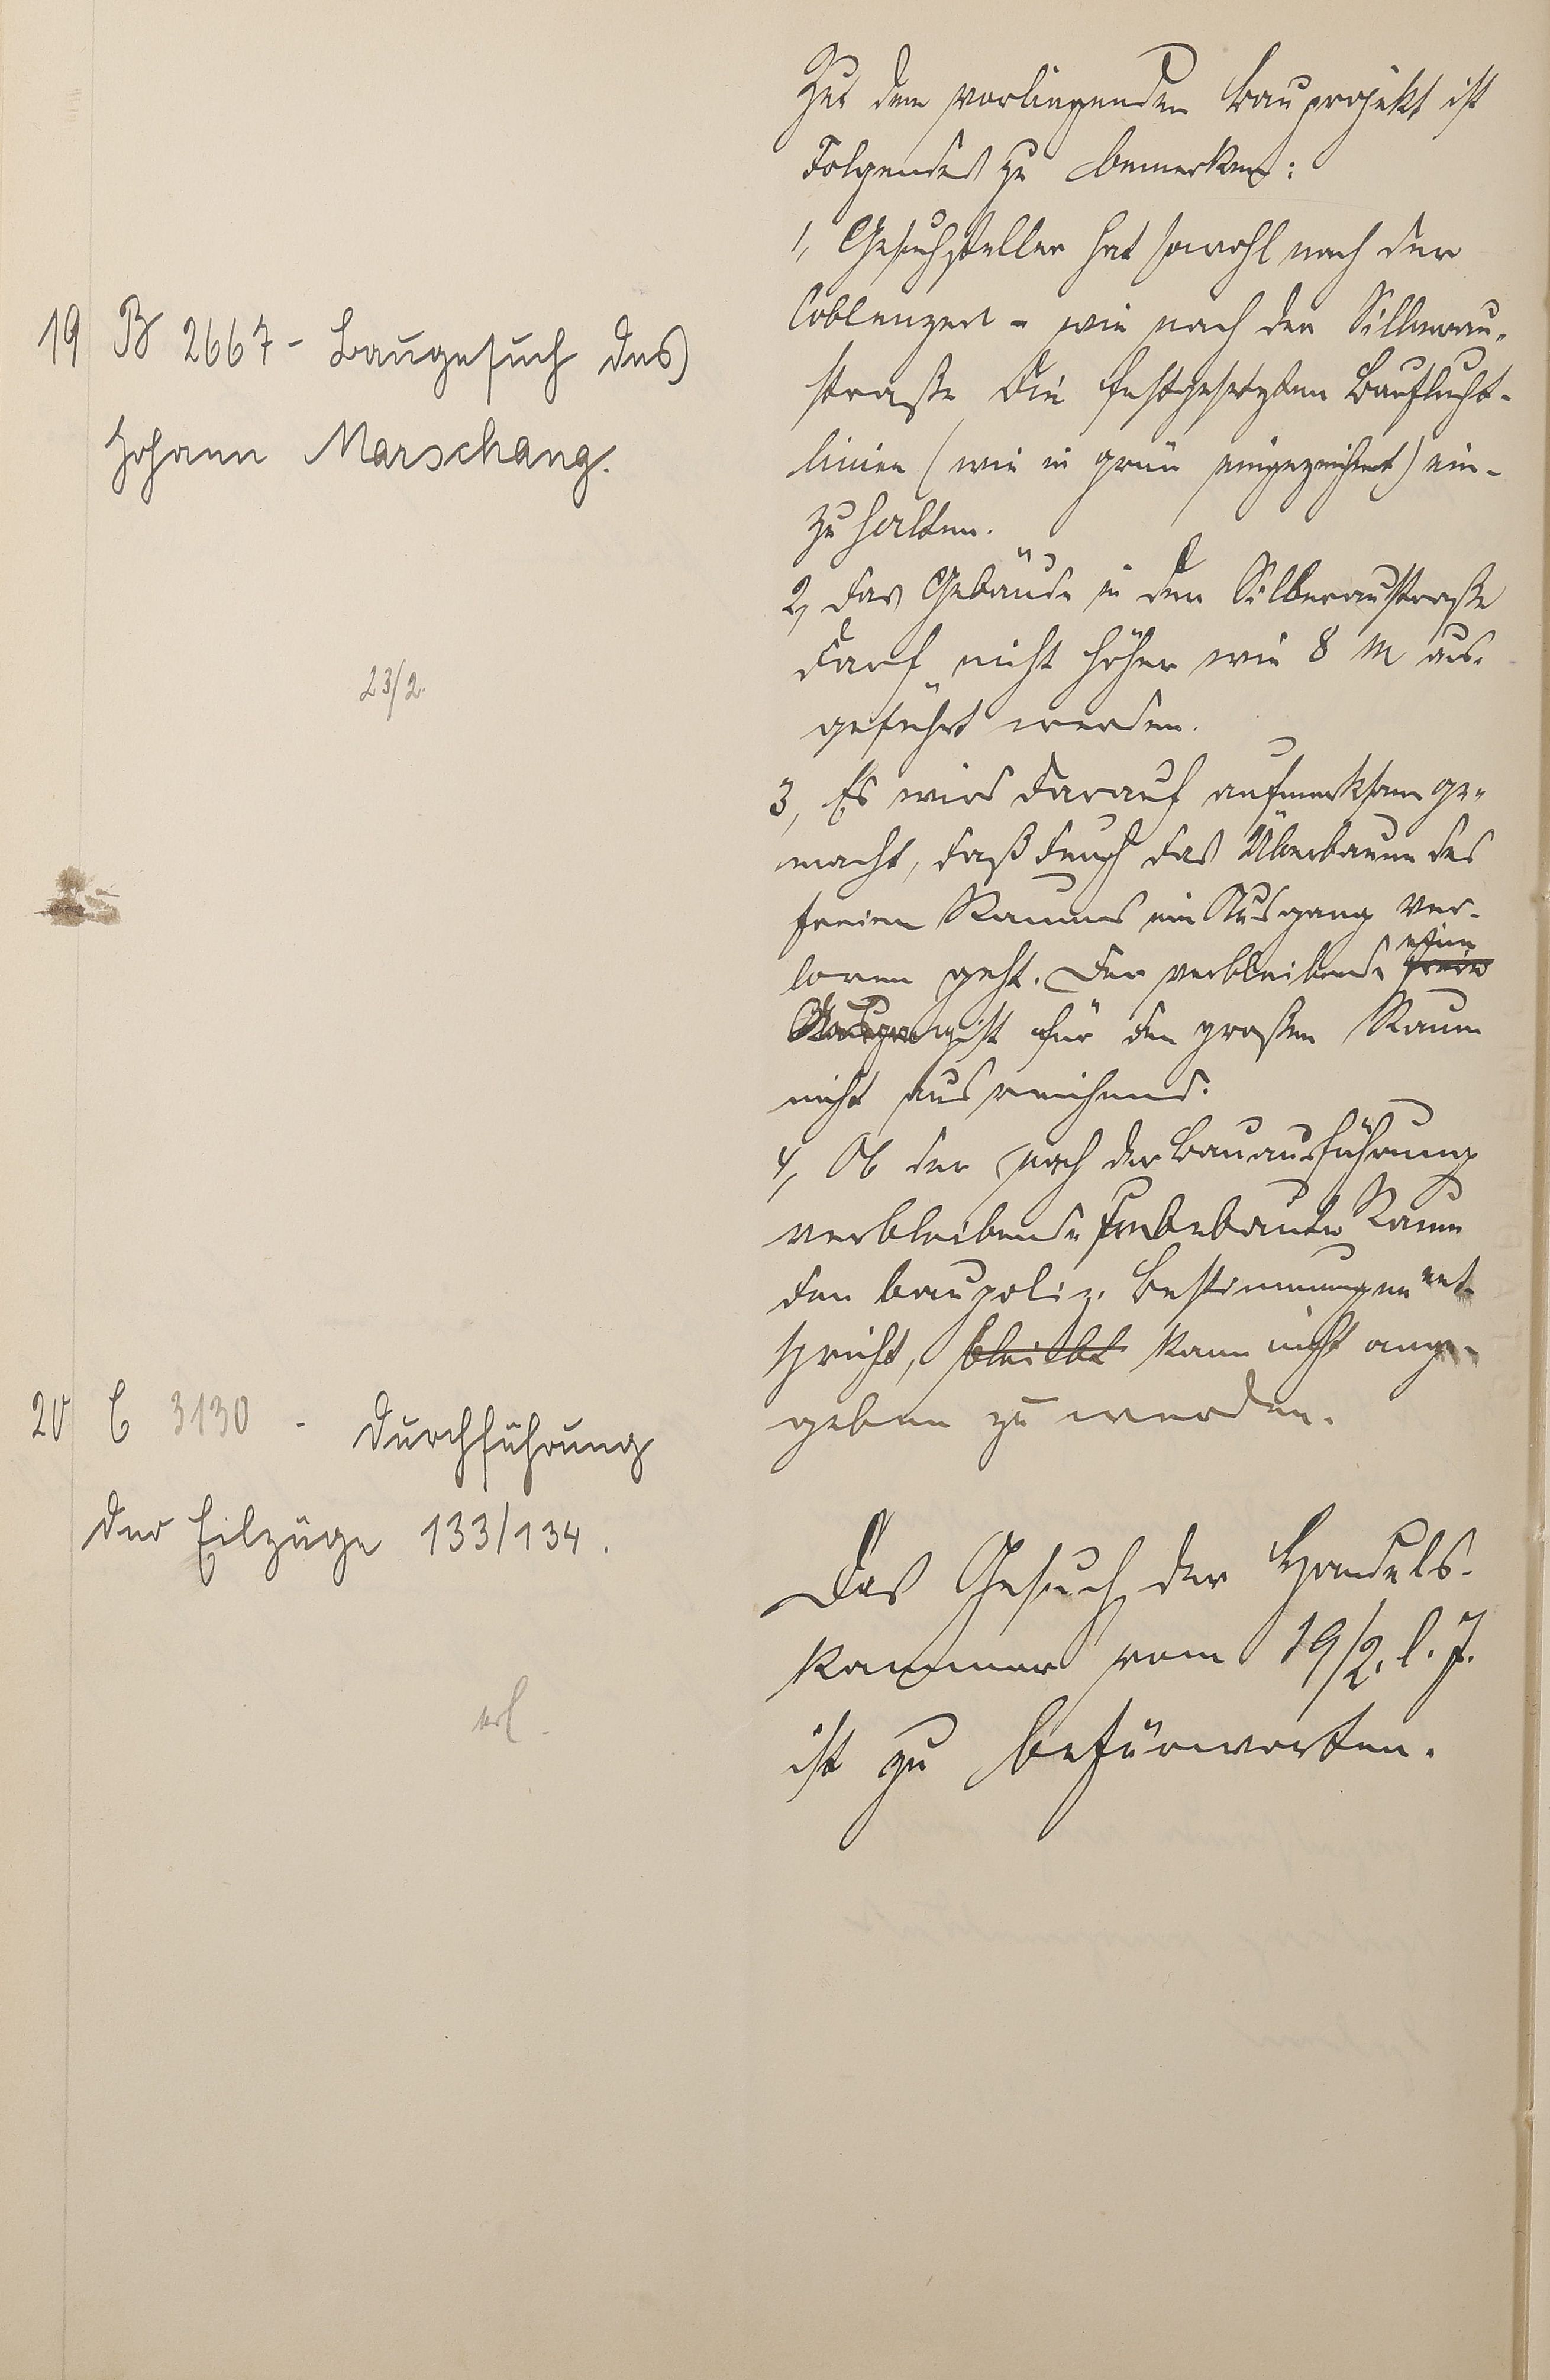 19 B 2667 - Baugesuch des
Johann Marschang.
23/2.
Zu dem vorliegenden Bauprojekt ist
Folgendes zu bemerken:
1, Gesuchsteller hat sowohl nach der
Coblenzer- wie nach der Silberau-
straße die festgesetzten Bauflucht-
linien (wie in grün eingezeichnet) ein-
zuhalten.
2, Das Gebäude in der Silberaustraße
darf nicht höher wie 8 m aus-
geführt werden.
3, Es wird darauf aufmerksam ge-
macht, daß durch das Überbauen des
freien Raumes ein Ausgang ver-
loren geht. Der verbleibende
ist für den großen Raum
nicht ausreichend.
4, Ob der nach der Bauausführung
verbleibende unbebaute Raum
den baupoliz. Bestimmungen ent-
spricht, bleibt kann nicht ange-
geben zu werden.
20 C 3130 - Durchführung
der Eilzüge 133/134.
erl.
Das Gesuch der Handels-
kammer vom 19/2. l. J.
ist zu befürworten.